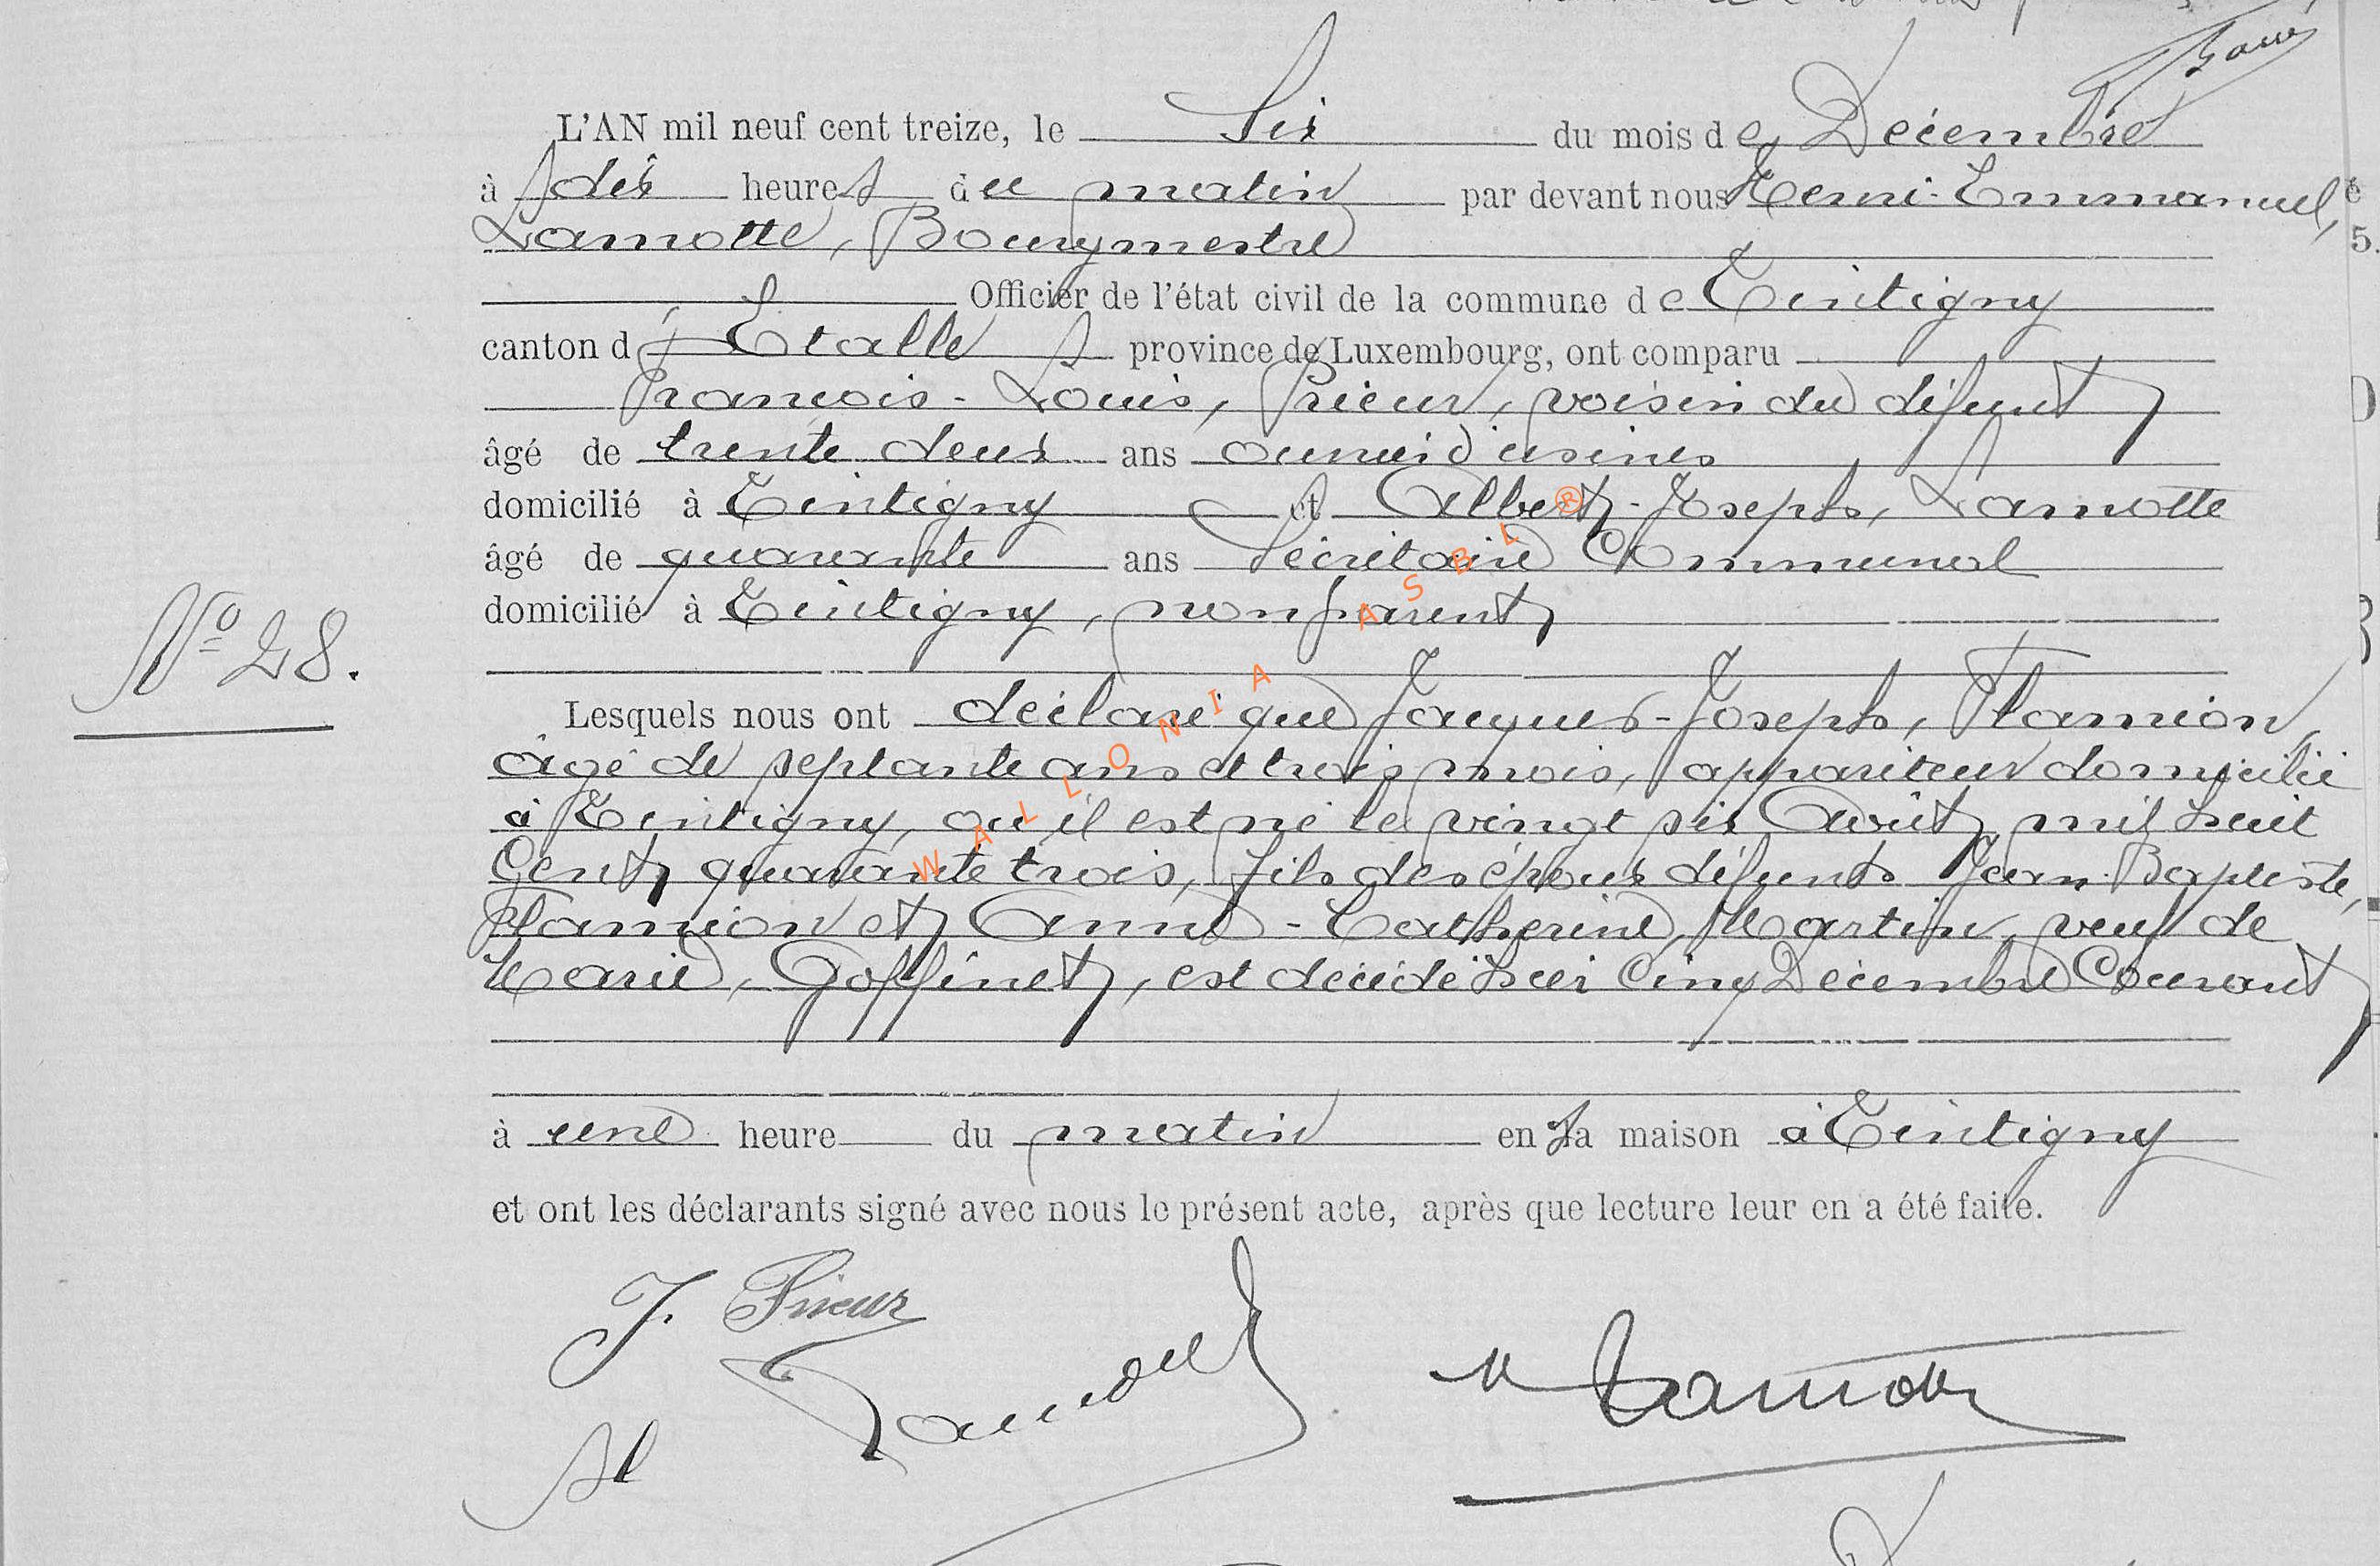 L'AN mil neuf cent treize, le Six du mois de Décembre
à dix heures du matin par devant nous Henri-Emmanuel,
Lamotte, Bourgmestre
Officier de l'état civil de la commune de Tintigny
canton d'Etalle province de Luxembourg, ont comparu
François-Louis, Prieur, voisin du défunt
âgé de trente deux ans ouvrier d'usines
domicilié à Tintigny et Albert-Joseph, Lamotte
âgé de quarante ans Secrétaire Communal
domicilié à Tintigny, non parent
N° 28.
Lesquels nous ont déclaré que Jacques-Joseph, Flamion,
âgé de septante ans et trois mois, appariteur domicilié
à Tintigny, où il est né le vingt six Août mil huit
Cent quarante trois, fils des époux défunts Jean-Baptiste,
Flamion et Anne-Catherine, Martin, veuf de
Marie, Goffinet, est décédé hier Cinq Décembre Courant
à une heure du matin en sa maison à Tintigny
et ont les déclarants signé avec nous le présent acte, après que lecture leur en a été faite.
F. Prieur
Al Lamotte
H Lamotte
WALLONIA ASBL ®